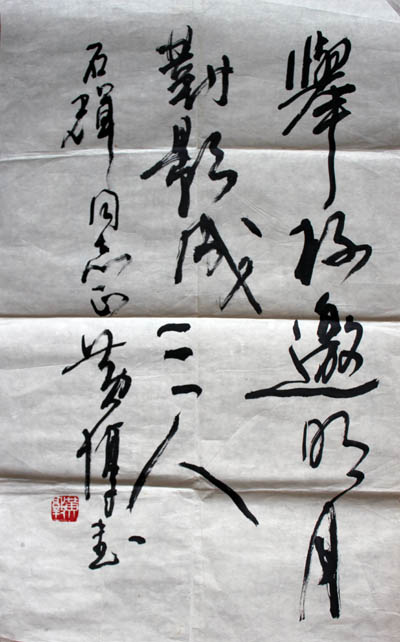 舉杯邀明月
對影成三人
石同志正 黄書